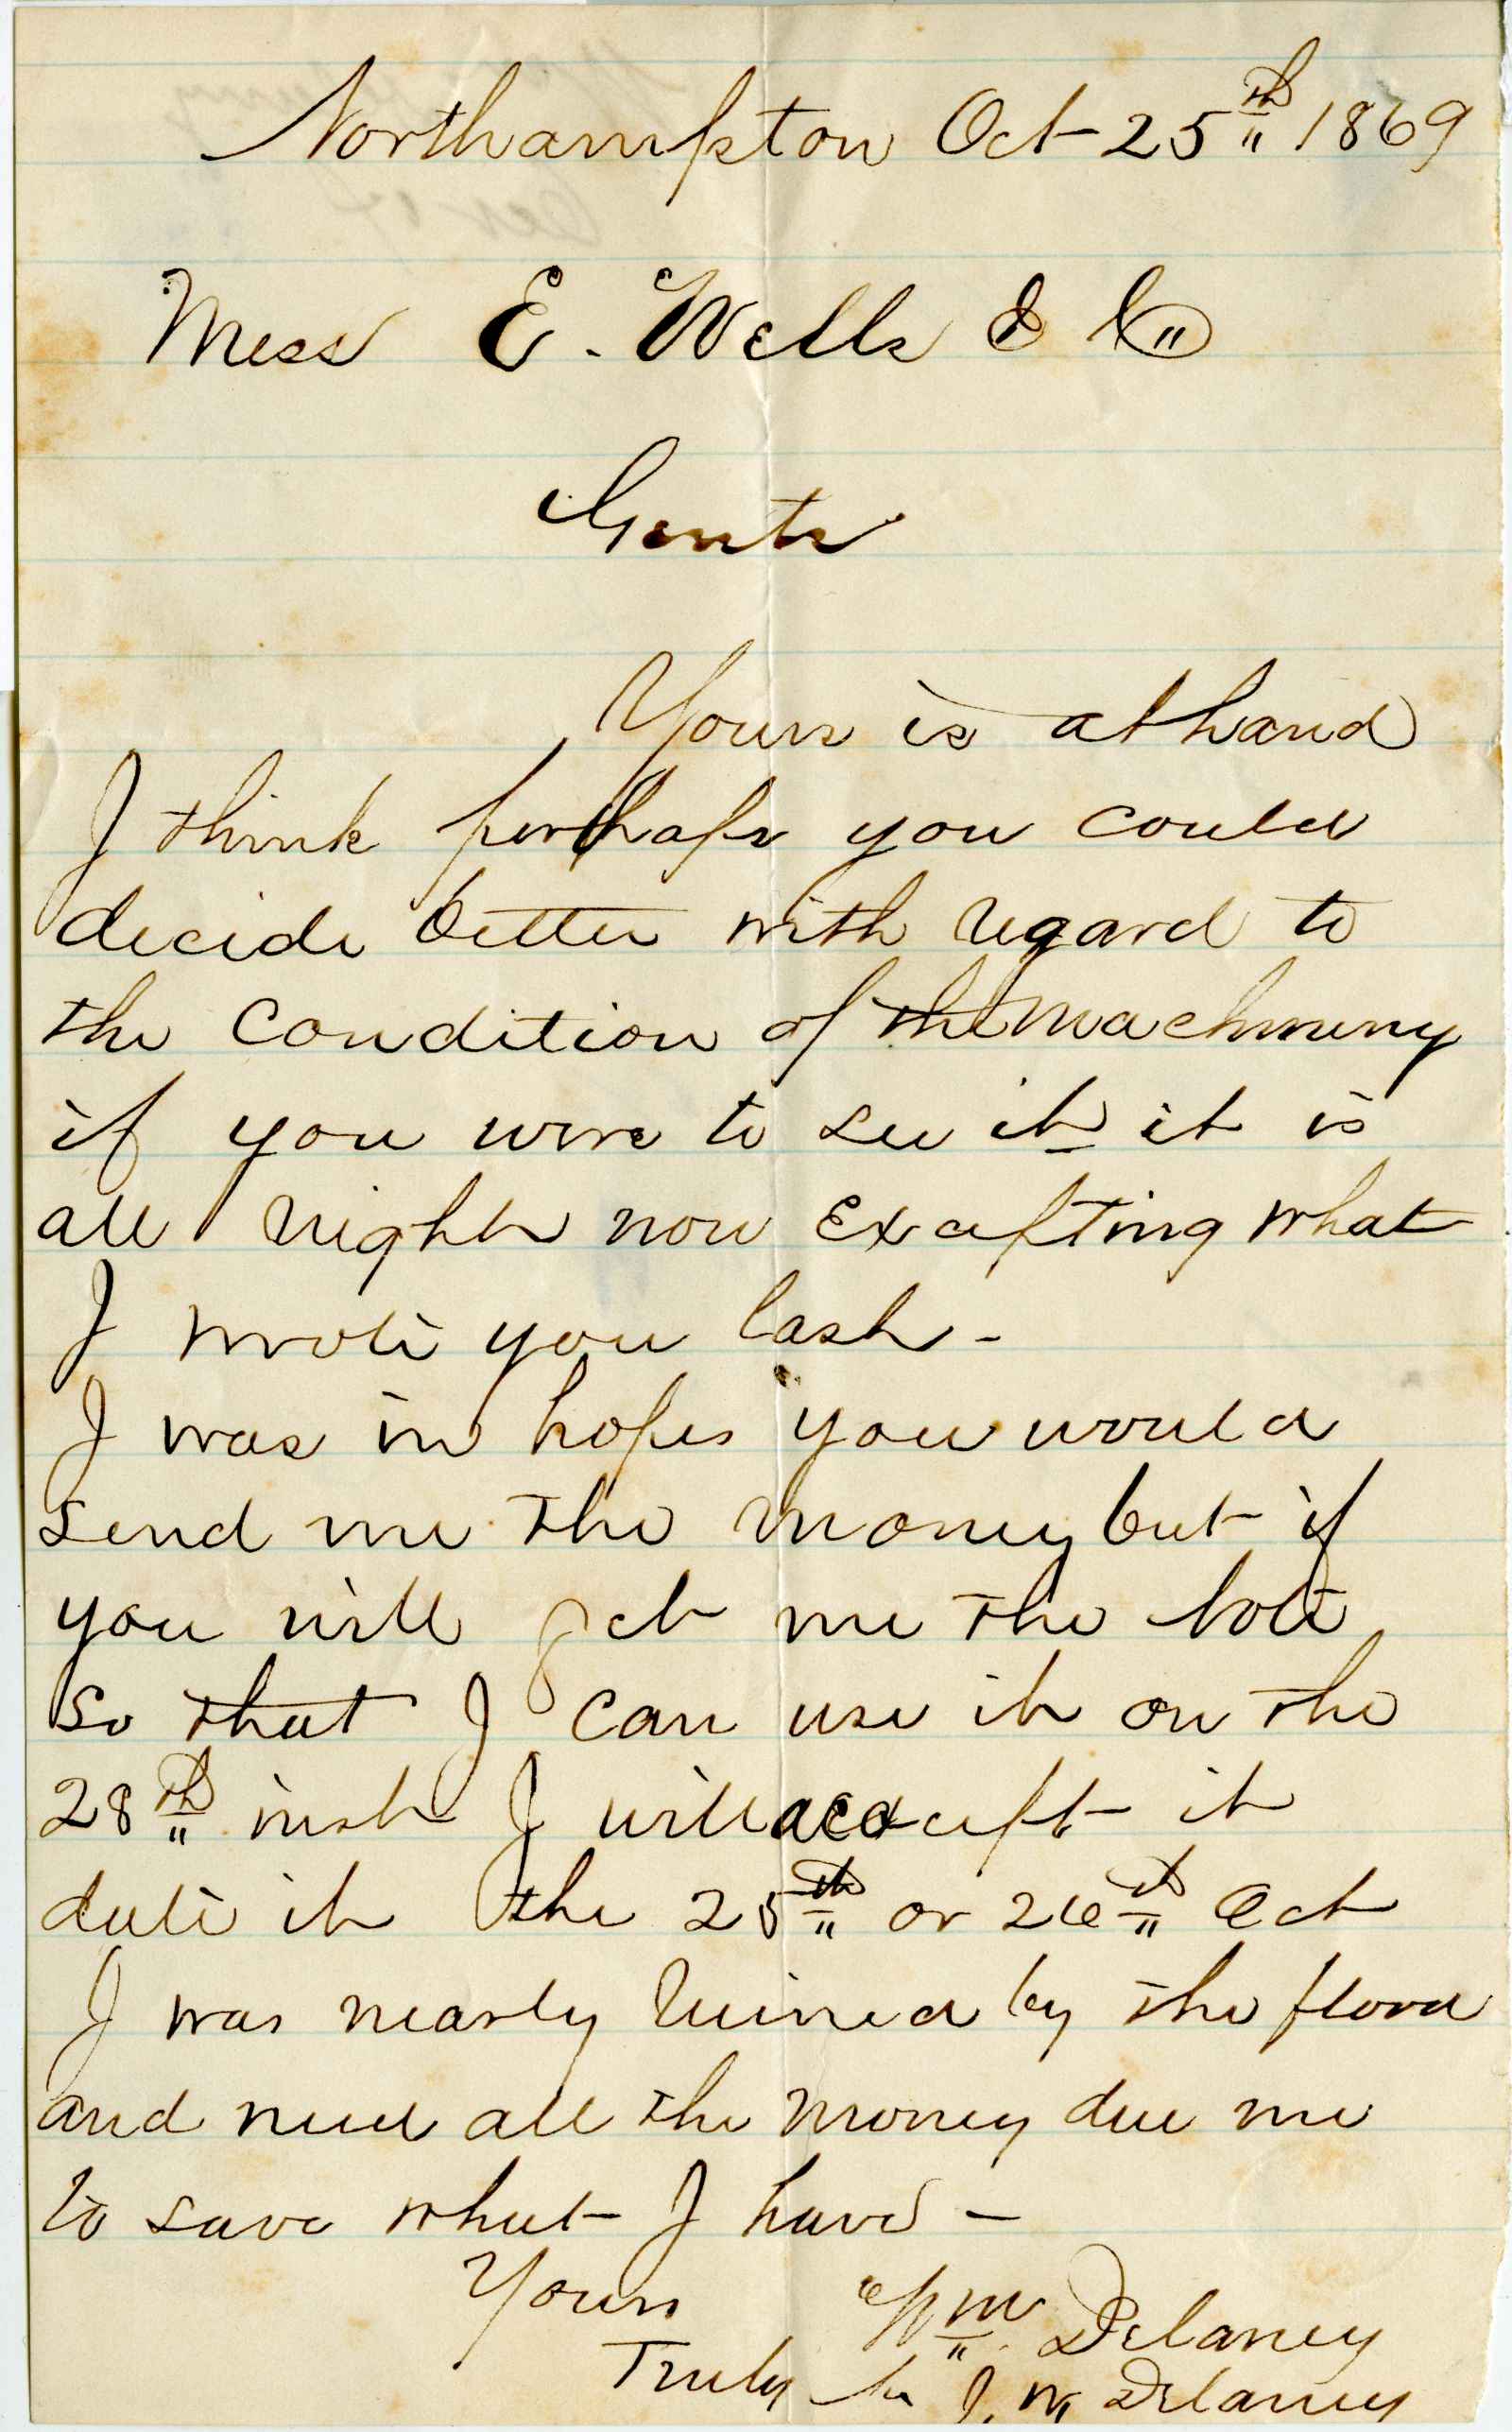 Northampton Oct 25th 1869
Mess E. Wells & Co
Gents
Yours is at hand
I think perhaps you could
decide better with regard to
the condition of the machinery
if you were to see it it is
all right now excepting what
I wrote you last -
I was in hopes you would
send me the money but if
you will get me the note
so that I can use it on the
28th inst I will accept it
date it the 25th or 26th Oct
I was nearly ruined by the flood
and need all the money due me
to save what I have -
Yours Wm Delaney
Truly J. W. Delaney